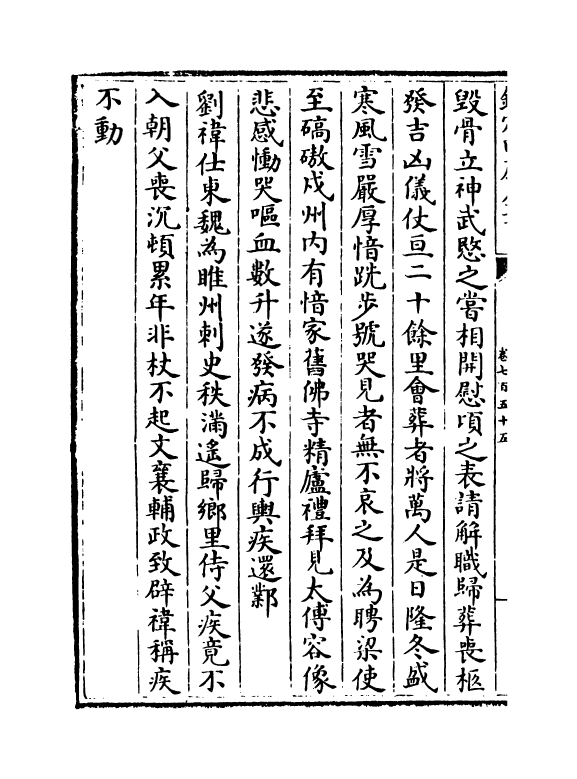 毀骨立神武愍之嘗相開慰頃之表請解職歸葬喪柩
發吉凶儀仗亘二十餘里會葬者將萬人是日隆冬盛
寒風雪嚴厚愔跣步號哭見者無不哀之及為聘梁使
至碻磝戍州内有愔家舊佛寺精廬禮拜見太傅容像
悲感慟哭嘔血數升遂發病不成行輿疾還鄴
劉禕仕東魏為睢州刺史秩滿遙歸鄉里侍父疾竟不
入朝父喪沉頓累年非杖不起文襄輔政致辟禕稱疾
不動
卷七百五十五